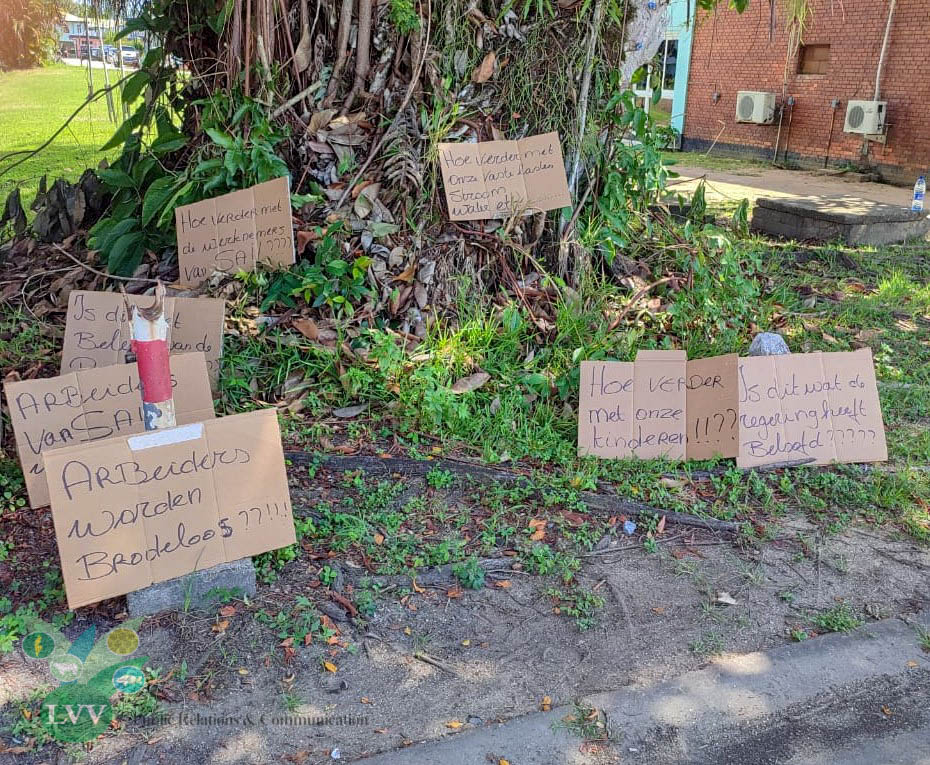 Hoe verder met
onze vaste lasten
Stroom
water etc
Hoe verder met
de werknemers
van SAI ????
Is dit
Beleid
ARBeiders
van SAI
ARBeiders
worden
Brodeloos ??!!!
Hoe verder
met onze
kinderen !!??
Is dit wat de
regering heeft
Beloofd ?????
LVV Public Relations & Communication